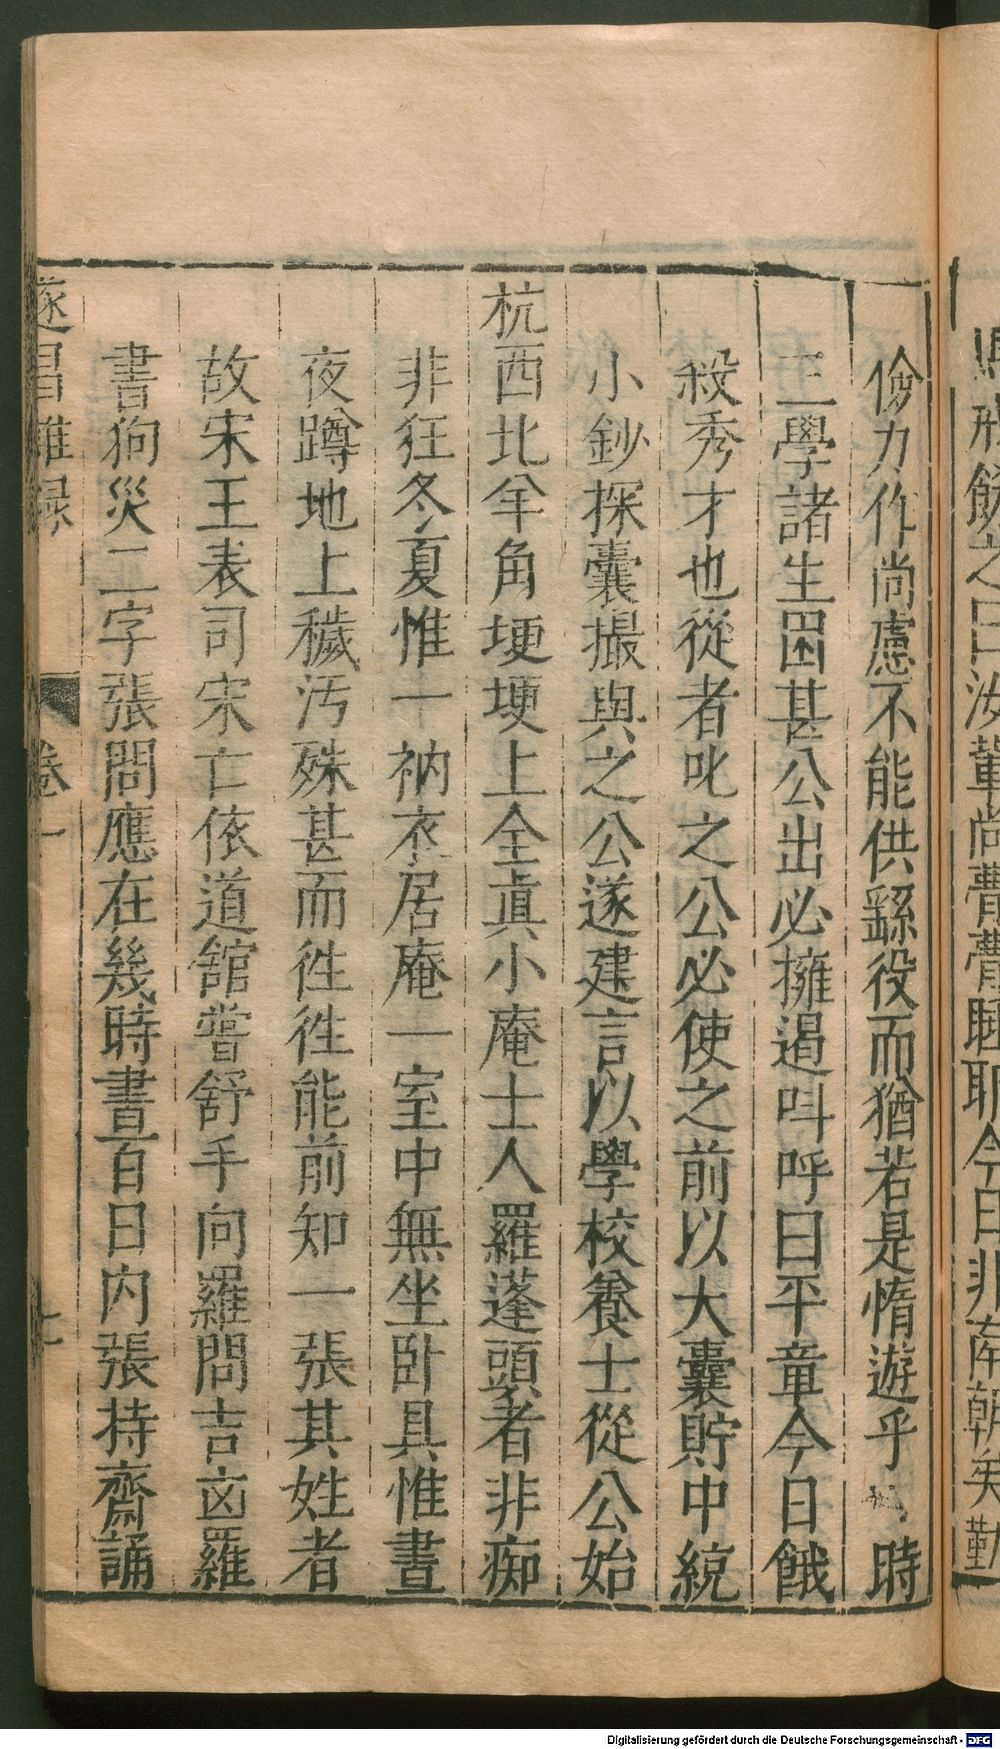 儉力作尚慮不能供繇役而猶若是惰遊乎時
三學諸生困甚公出必擁遏叫呼曰平章今日餓
殺秀才也從者叱之公必使之前以大囊貯中統
小鈔探囊撮與之公遂建言以學校養士從公始
杭西北羊角埂埂上全眞小庵士人羅蓬頭者非痴
非狂冬夏惟一衲衣居庵一室中無坐臥具惟晝
夜蹲地上穢汚殊甚而徃徃能前知一張其姓者
故宋王表司宋亡依道館嘗舒手向羅問吉凶羅
書狗災二字張問應在幾時書百日内張持齋誦
遂昌雜録 卷一 七
Digitalisierung gefördert durch die Deutsche Forschungsgemeinschaft - DFG